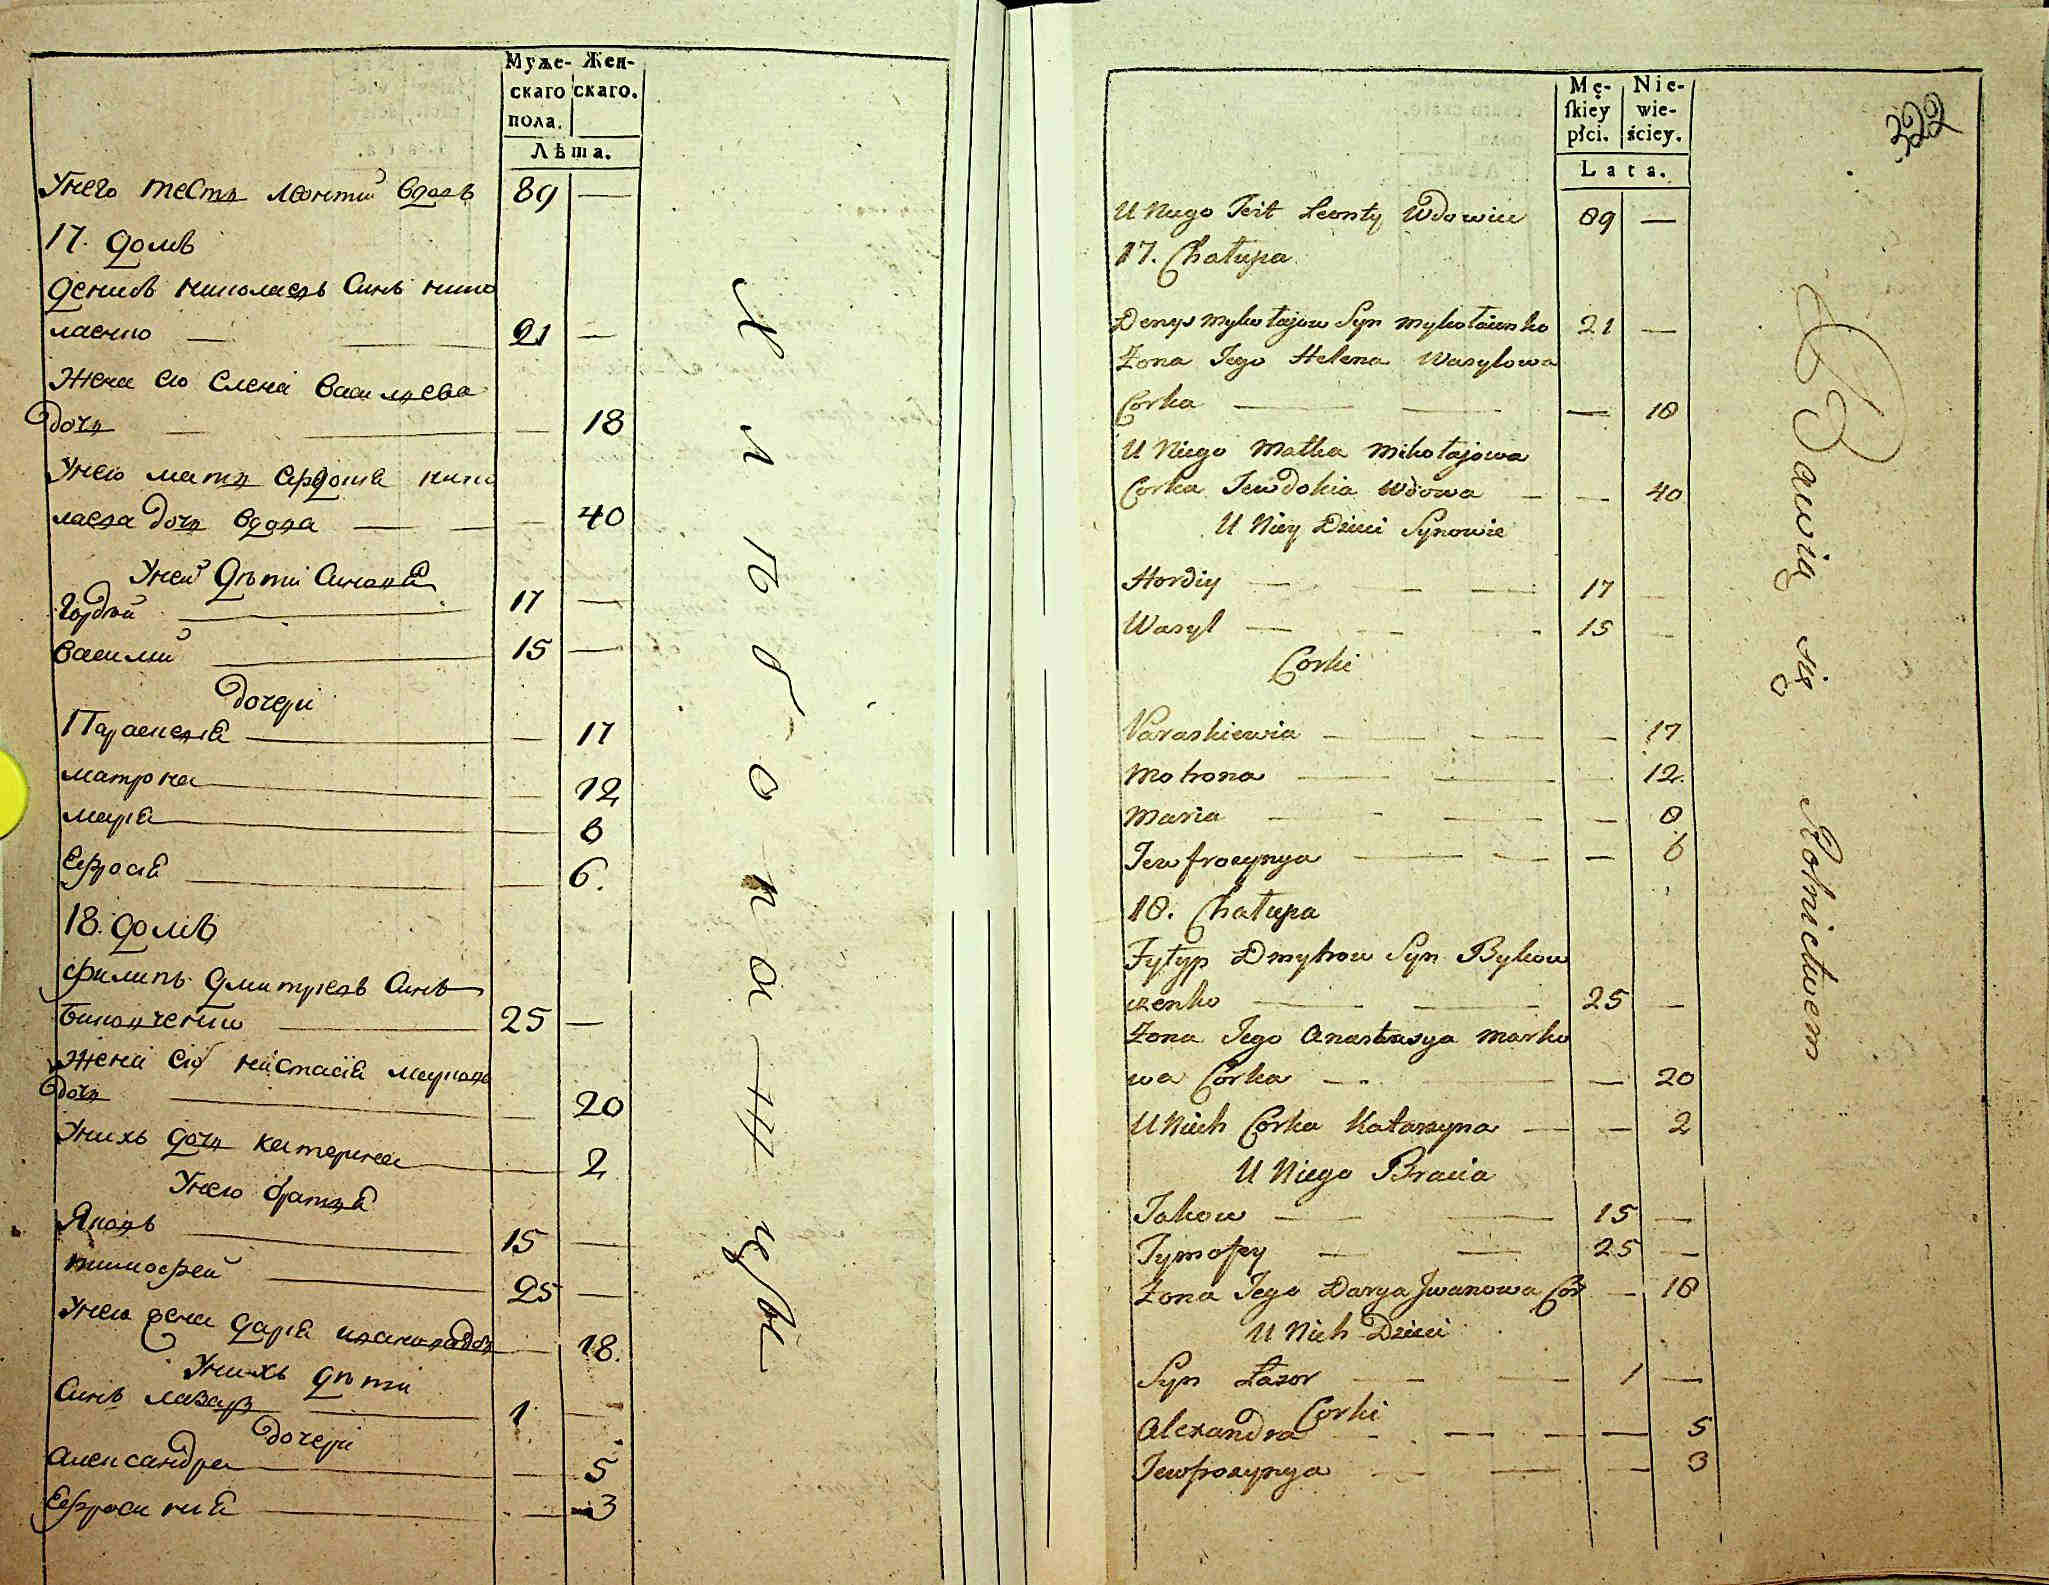 Муже- Жен-
скаго скаго.
пола.
Лѣта.
Унего тестъ леонтий вдовъ 89 —
17. домъ
денисъ николаевъ синъ нико
лаенко — 21 —
Жена его елена василиева
дочь — 18
Унего мать евдокиа нико
лаева дочь вдова — 40
Уней дѣти синовя
Гордѣй — 17 —
василий — 15 —
дочери
Параскевиа — 17
матрона — 12
мариа — 8
Ефросиа — 6.
18. домъ
филипъ дмитриевъ синъ
Биковченко — 25 —
Жена его настасиа маркова
дочь — 20
Унихъ дочь катерина — 2
Унего братья
Яковъ — 15 —
тимофей — 25 —
Унего жена дариа иванова доч — 18.
Унихъ дѣти
Синъ лазаръ — 1 —
дочери
александра — 5
Ефросиниа — 3
Хлѣбопашцы
Mę- Nie-
skiey wie-
płci. ściey.
Lata.
322
U Niego Teść Leonty Wdowiec 89 —
17. Chałupa
Denys Mykołajow Syn Mykołaienko 21 —
Żona Jego Helena Wasylowa
Corka — 18
U Niego Matka Mikołajowa
Corka Jewdokia Wdowa — 40
U Niey Dzieci Synowie
Hordiy — 17 —
Wasyl — 15 —
Corki
Paraskiewia — 17
Motrona — 12.
Maria — 8
Jewfrozynya — 6
18. Chałupa
Fyłyp Dmytrow Syn Bykow
czenko — 25 —
Żona Jego Anastazya Marko
wa Corka — 20
U Nich Corka Katarzyna — 2
U Niego Bracia
Jakow — 15 —
Tymofey — 25 —
Żona Jego Darya Jwanowa Cor — 18
U Nich Dzieci
Syn Łazor — 1 —
Corki
Alexandra — 5
Jewfrozynya — 3
Bawią się Rolnictwem